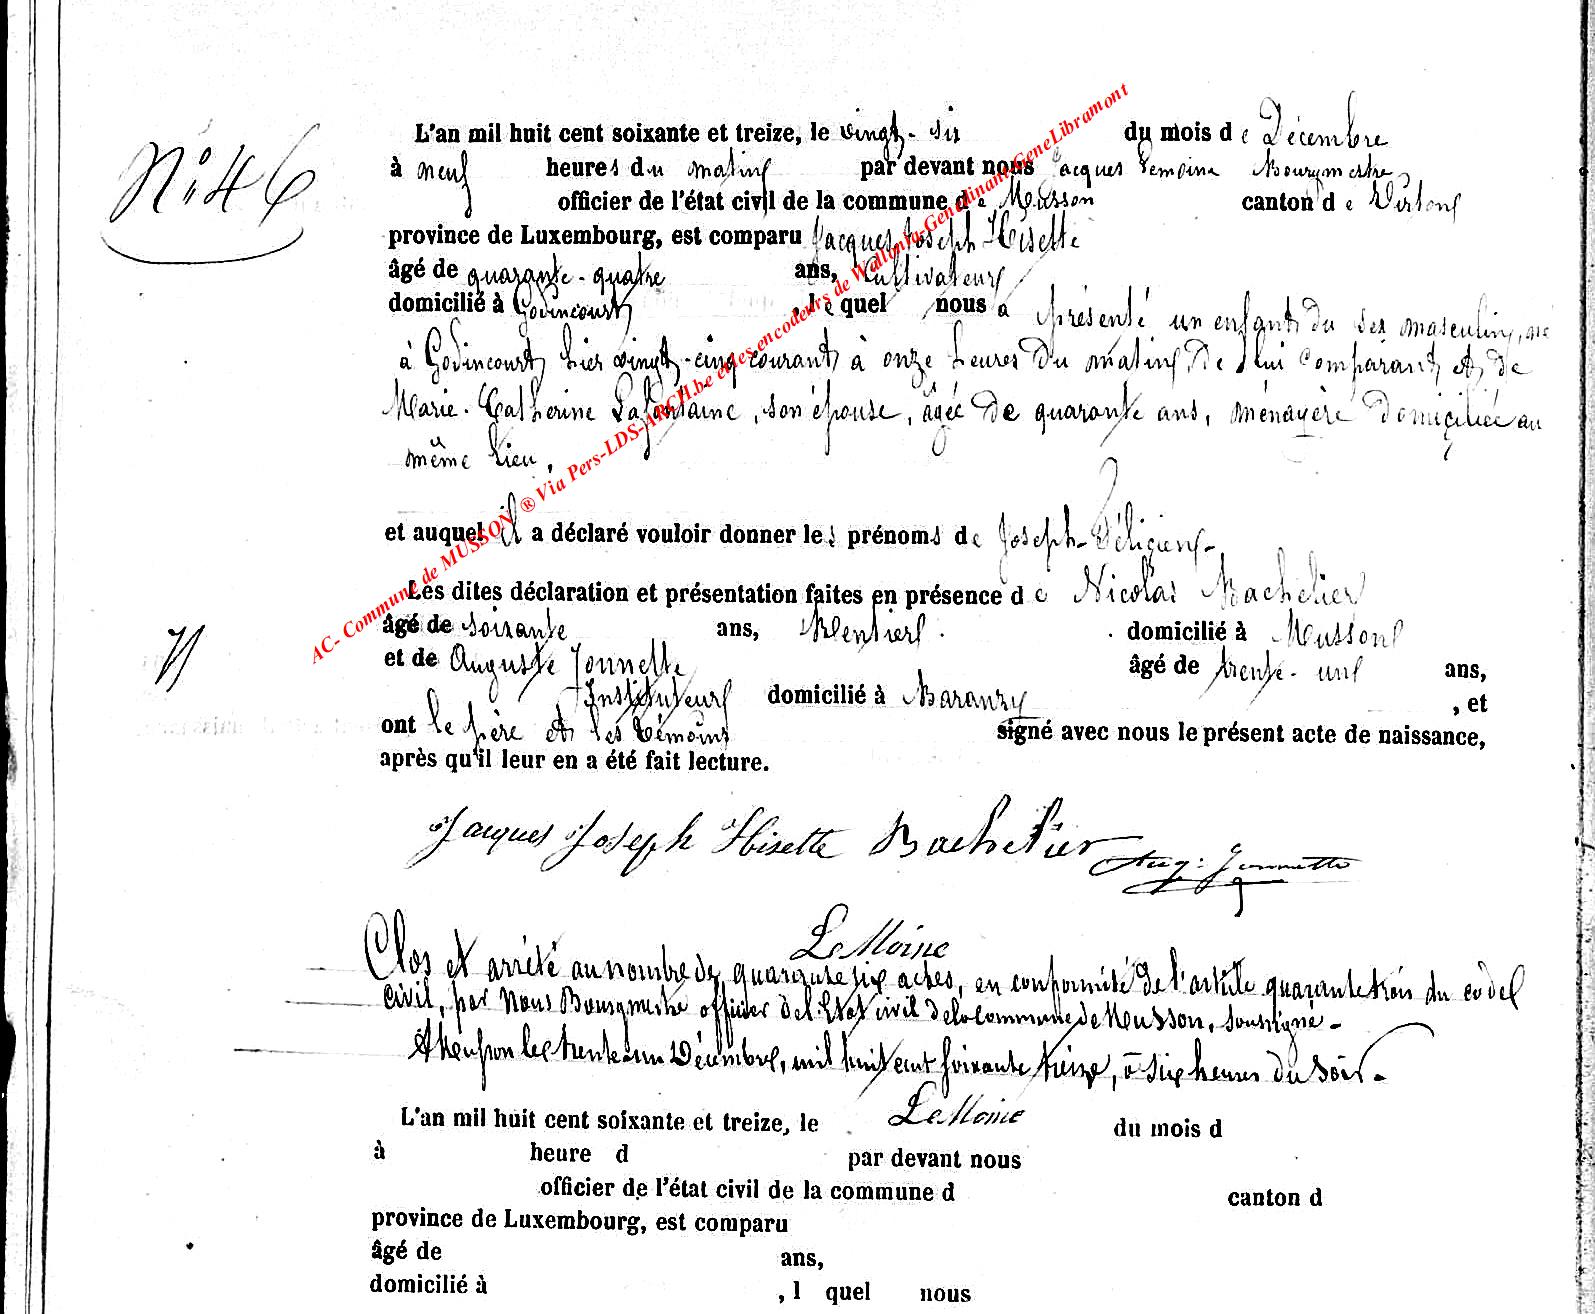 N° 46
L'an mil huit cent soixante et treize, le vingt-six du mois de Décembre
à neuf heures du matin par devant nous Jacques Lemoine Bourgmestre
officier de l'état civil de la commune de Musson canton de Virton
province de Luxembourg, est comparu Jacques Joseph Hisette
âgé de quarante-quatre ans, Cultivateur
domicilié à Godincourt, le quel nous a présenté un enfant du sex masculin, né
à Godincourt hier vingt-cinq courant à onze heures du matin de lui comparant et de
Marie-Catherine Lafontaine, son épouse, âgée de quarante ans, ménagère domiciliée au
même lieu,
et auquel il a déclaré vouloir donner les prénoms de Joseph-Féliciens-
Les dites déclaration et présentation faites en présence de Nicolas Bachelier
âgé de soixante ans, Rentier domicilié à Musson
et de Auguste Jonnette âgé de trente-un ans,
Instituteur domicilié à Baranzy, et
ont le père et les témoins signé avec nous le présent acte de naissance,
après qu'il leur en a été fait lecture.
Jacques Joseph Hisette Bachelier Aug: Jonnette
LeMoine
Clos et arrêté au nombre de quarante six actes, en conformité de l'article quarante trois du code
Civil, par Nous Bourgmestre officier de l'Etat civil de la Commune de Musson, soussigné-
A Musson le trente un Décembre, mil huit cent soixante treize, à six heures du soir.-
LeMoine
L'an mil huit cent soixante et treize, le du mois d
à heure d par devant nous
officier de l'état civil de la commune d canton d
province de Luxembourg, est comparu
âgé de ans,
domicilié à , l quel nous
AC- Commune de MUSSON ® Via Pers-LDS-ARCH.be et les encodeurs de Wallonia-Genedinant-GeneLibramont